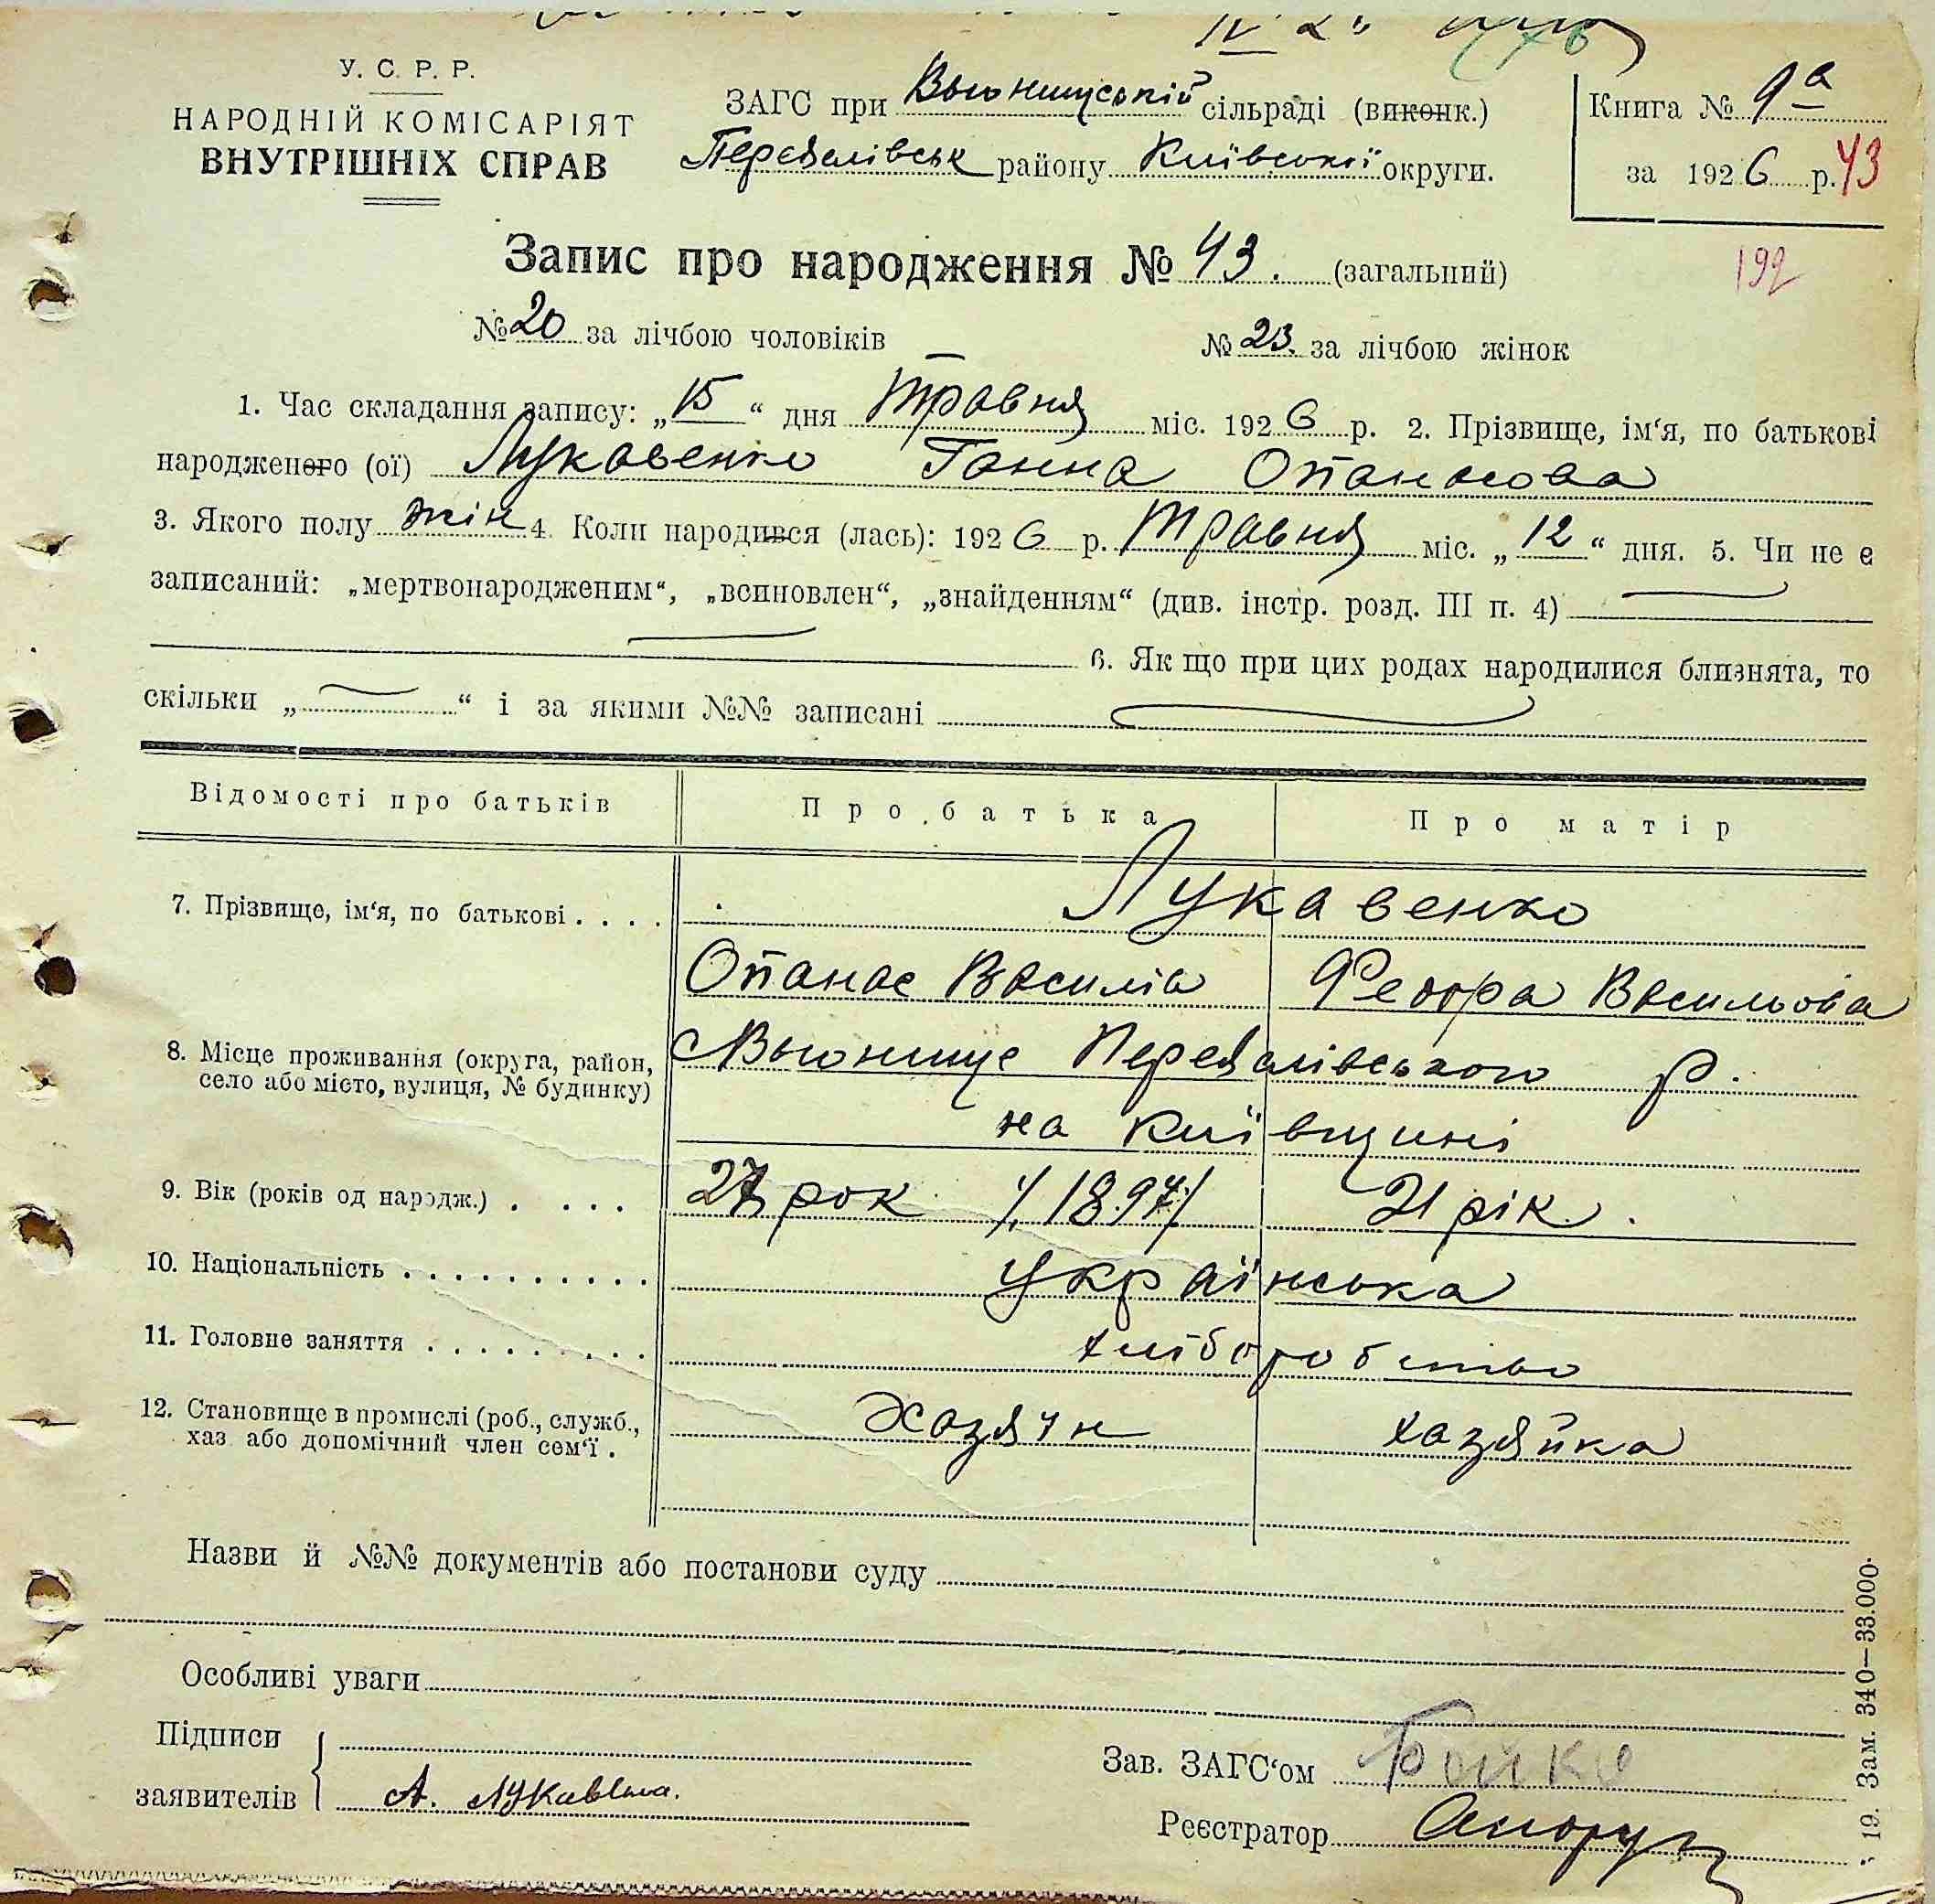 IV 2"
У. С. Р. Р.
НАРОДНІЙ КОМІСАРІЯТ
ВНУТРІШНІХ СПРАВ
ЗАГС при Вьюнищуській сільраді (виконк.)
Переялівськ району Київської округи.
Книга № 9а
за 1926 р. 43
192
Запис про народження № 43. (загальний)
№ 20 за лічбою чоловіків № 23. за лічбою жінок
1. Час складання запису: „15“ дня Травня міс. 1926 р. 2. Прізвище, ім‘я, по батькові
народженого (ої) Лукавенко Ганна Опанасова
3. Якого полу жін 4. Коли народився (лась): 1926 р. Травня міс. „12“ дня. 5. Чи не є
записаний: „мертвонародженим“, „всиновлен“, „знайденням“ (див. інстр. розд. III п. 4)
6. Як що при цих родах народилися близнята, то
скільки „ “ і за якими №№ записані
Відомості про батьків Про батька Про матір
7. Прізвище, ім‘я, по батькові . . . . Лукавенко
Опанас Василів Федора Васильова
8. Місце проживання (округа, район,
село або місто, вулиця, № будинку)
с Вьюнище Переялівського р.
на Київщині
9. Вік (років од народж.) . . . . 27 рок /1897/ 21 рік.
10. Національність . . . . . . . . . . Українська
11. Головне заняття . . . . . . . . . хліборобство
12. Становище в промислі (роб., служб.,
хаз. або допомічний член сем‘ї .
Хазяїн хазяйка
Назви й №№ документів або постанови суду
Особливі уваги
Підписи
заявителів А. Лукавенко.
Зав. ЗАГС‘ом Бойко
Реєстратор
19. Зам. 340—33.000.